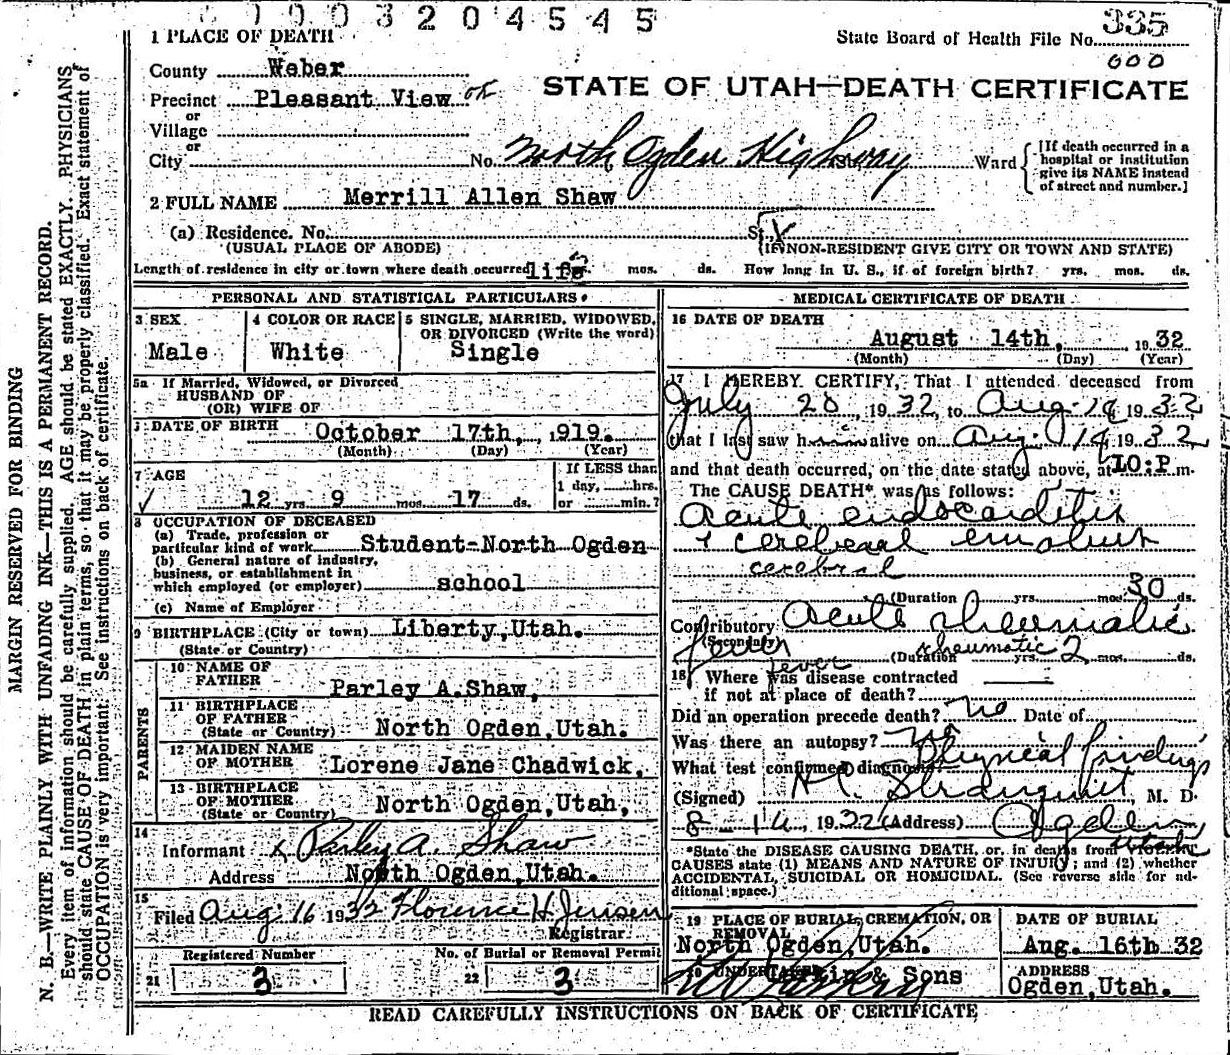 0003204545
335
000
State Board of Health File No.
STATE OF UTAH—DEATH CERTIFICATE
1 PLACE OF DEATH
County Weber
Precinct Pleasant View
or
Village
or
City No. North Ogden Highway St. Ward
[If death occurred in a hospital or institution give its NAME instead of street and number.]
2 FULL NAME Merrill Allen Shaw
(a) Residence. No. St.
(USUAL PLACE OF ABODE) (IF NON-RESIDENT GIVE CITY OR TOWN AND STATE)
Length of residence in city or town where death occurred life mos. ds. How long in U. S., if of foreign birth? yrs. mos. ds.
PERSONAL AND STATISTICAL PARTICULARS
3 SEX
Male
4 COLOR OR RACE
White
5 SINGLE, MARRIED, WIDOWED, OR DIVORCED (Write the word)
Single
5a If Married, Widowed, or Divorced
HUSBAND OF
(OR) WIFE OF
DATE OF BIRTH October 17th, 1919.
(Month) (Day) (Year)
7 AGE
12 yrs 9 mos. 17 ds.
If LESS than
1 day, hrs.
or min.?
8 OCCUPATION OF DECEASED
(a) Trade, profession or
particular kind of work Student-North Ogden
(b) General nature of industry,
business, or establishment in
which employed (or employer) school
(c) Name of Employer
9 BIRTHPLACE (City or town) Liberty,Utah.
(State or Country)
PARENTS
10 NAME OF FATHER Parley A.Shaw,
11 BIRTHPLACE OF FATHER (State or Country) North Ogden,Utah.
12 MAIDEN NAME OF MOTHER Lorene Jane Chadwick,
13 BIRTHPLACE OF MOTHER (State or Country) North Ogden,Utah,
14
Informant x Parley A. Shaw
Address North Ogden,Utah.
15
Filed Aug 16 1932 Florence H Jensen
Registrar
Registered Number No. of Burial or Removal Permit
21 3 22 3
MEDICAL CERTIFICATE OF DEATH
16 DATE OF DEATH
August 14th, 1932
(Month) (Day) (Year)
17 I HEREBY CERTIFY, That I attended deceased from
July 20, 1932, to Aug. 14 1932
that I last saw him alive on Aug. 14 1932
and that death occurred, on the date stated above, at 10:P m.
The CAUSE DEATH* was as follows:
Acute endocarditis
& cerebral embolus
cerebral
(Duration yrs. mos. 30 ds.
Contributory Acute rheumatic
(Secondary)
fever rheumatic
fever (Duration yrs. 2 mos. ds.
18 Where was disease contracted
if not at place of death?
Did an operation precede death? no Date of
Was there an autopsy? no
What test confirmed diagnosis? Physical findings
(Signed) Stranquist, M. D.
8 - 14, 1932 (Address) Ogden
Utah
*State the DISEASE CAUSING DEATH, or, in deaths from VIOLENT
CAUSES state (1) MEANS AND NATURE OF INJURY; and (2) whether
ACCIDENTAL, SUICIDAL OR HOMICIDAL. (See reverse side for ad-
ditional space.)
19 PLACE OF BURIAL, CREMATION, OR REMOVAL
North Ogden,Utah.
DATE OF BURIAL
Aug. 16th 32
20 UNDERTAKER
& Sons
ADDRESS
Ogden,Utah.
READ CAREFULLY INSTRUCTIONS ON BACK OF CERTIFICATE
MARGIN RESERVED FOR BINDING
N. B.—WRITE PLAINLY WITH UNFADING INK—THIS IS A PERMANENT RECORD.
Every item of information should be carefully supplied. AGE should be stated EXACTLY. PHYSICIANS
should state CAUSE OF DEATH in plain terms, so that it may be properly classified. Exact statement of
OCCUPATION is very important. See instructions on back of certificate.